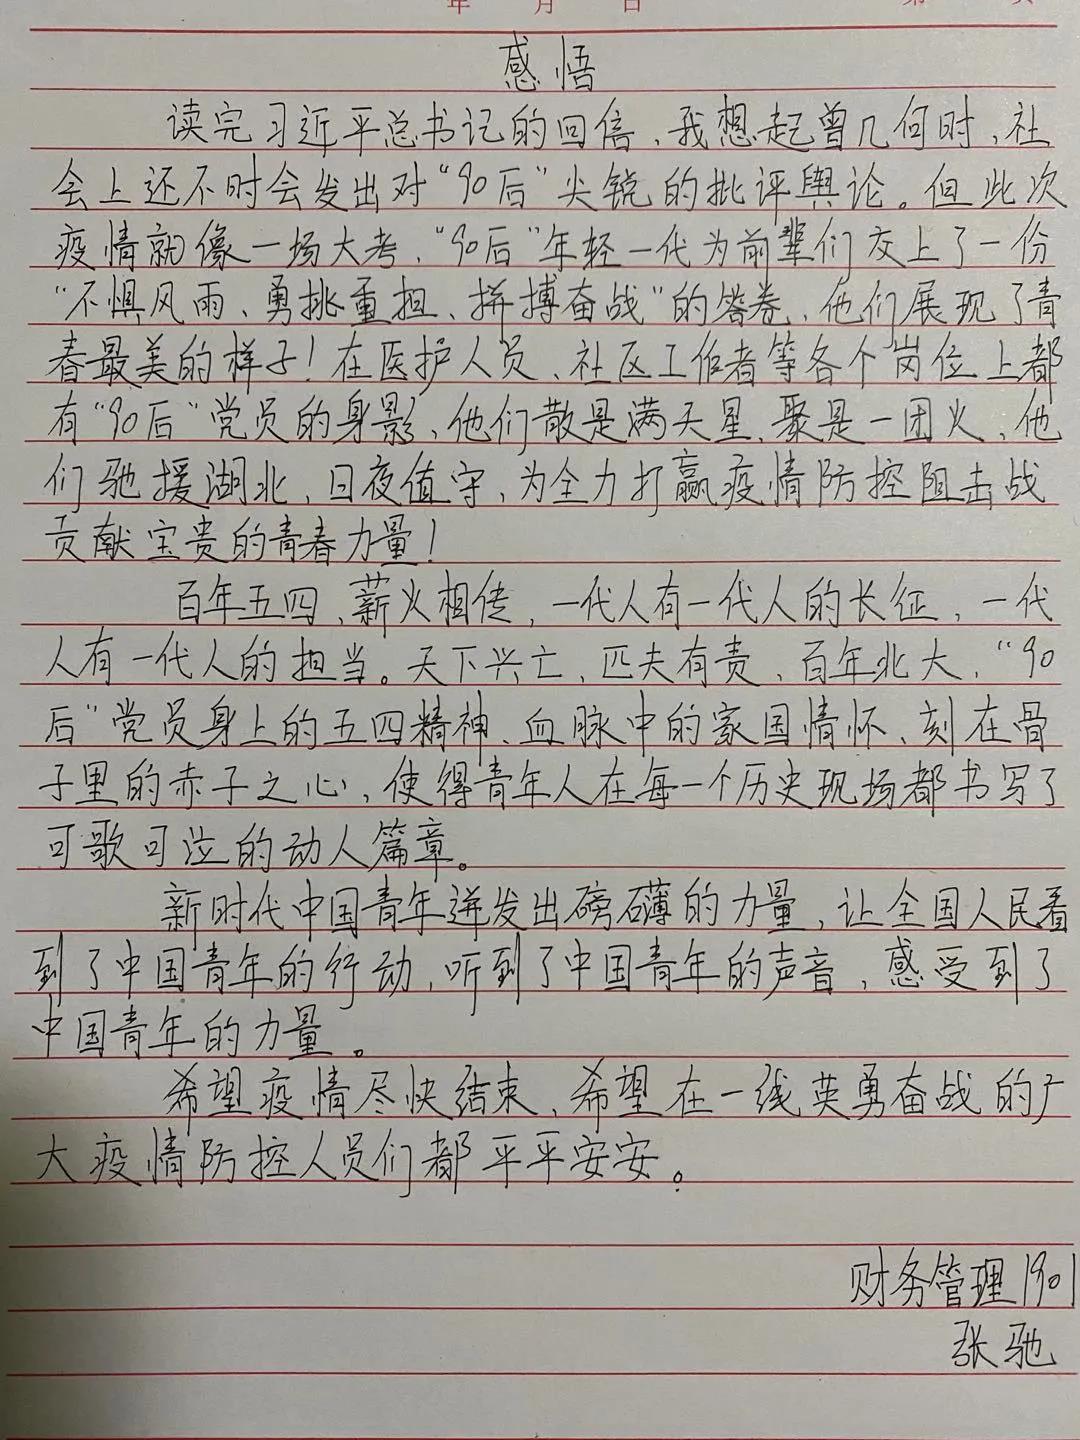 年 月 日 第 页
感悟
读完习近平总书记的回信，我想起曾几何时，社
会上还不时会发出对“90后”尖锐的批评舆论。但此次
疫情就像一场大考，“90后”年轻一代为前辈们交上了一份
“不惧风雨、勇挑重担、拼搏奋战”的答卷，他们展现了青
春最美的样子！在医护人员、社区工作者等各个岗位上都
有“90后”党员的身影，他们散是满天星，聚是一团火，他
们驰援湖北，日夜值守，为全力打赢疫情防控阻击战
贡献宝贵的青春力量！
百年五四，薪火相传，一代人有一代人的长征，一代
人有一代人的担当。天下兴亡，匹夫有责，百年北大，“90
后”党员身上的五四精神、血脉中的家国情怀、刻在骨
子里的赤子之心，使得青年人在每一个历史现场都书写了
可歌可泣的动人篇章。
新时代中国青年迸发出磅礴的力量，让全国人民看
到了中国青年的行动，听到了中国青年的声音，感受到了
中国青年的力量。
希望疫情尽快结束，希望在一线英勇奋战的广
大疫情防控人员们都平平安安。
财务管理1901
张驰